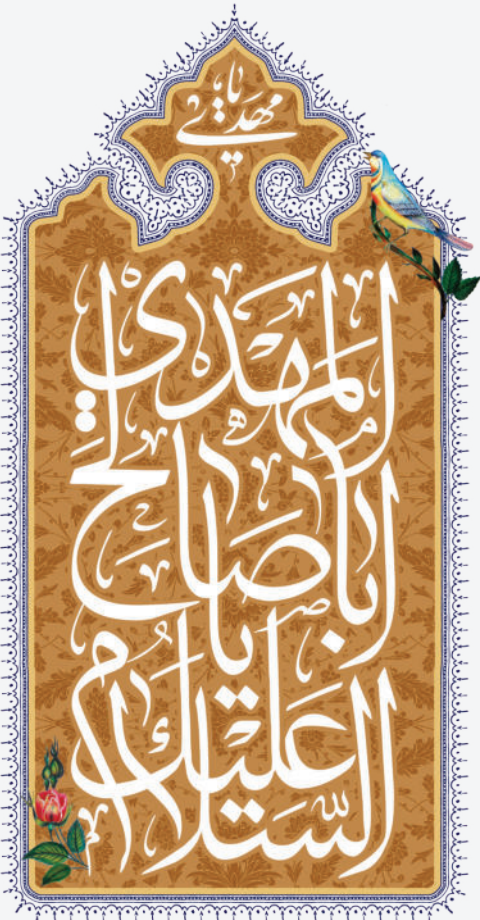 یا مهدی
السلام علیک یا
اباصالح
المهدی